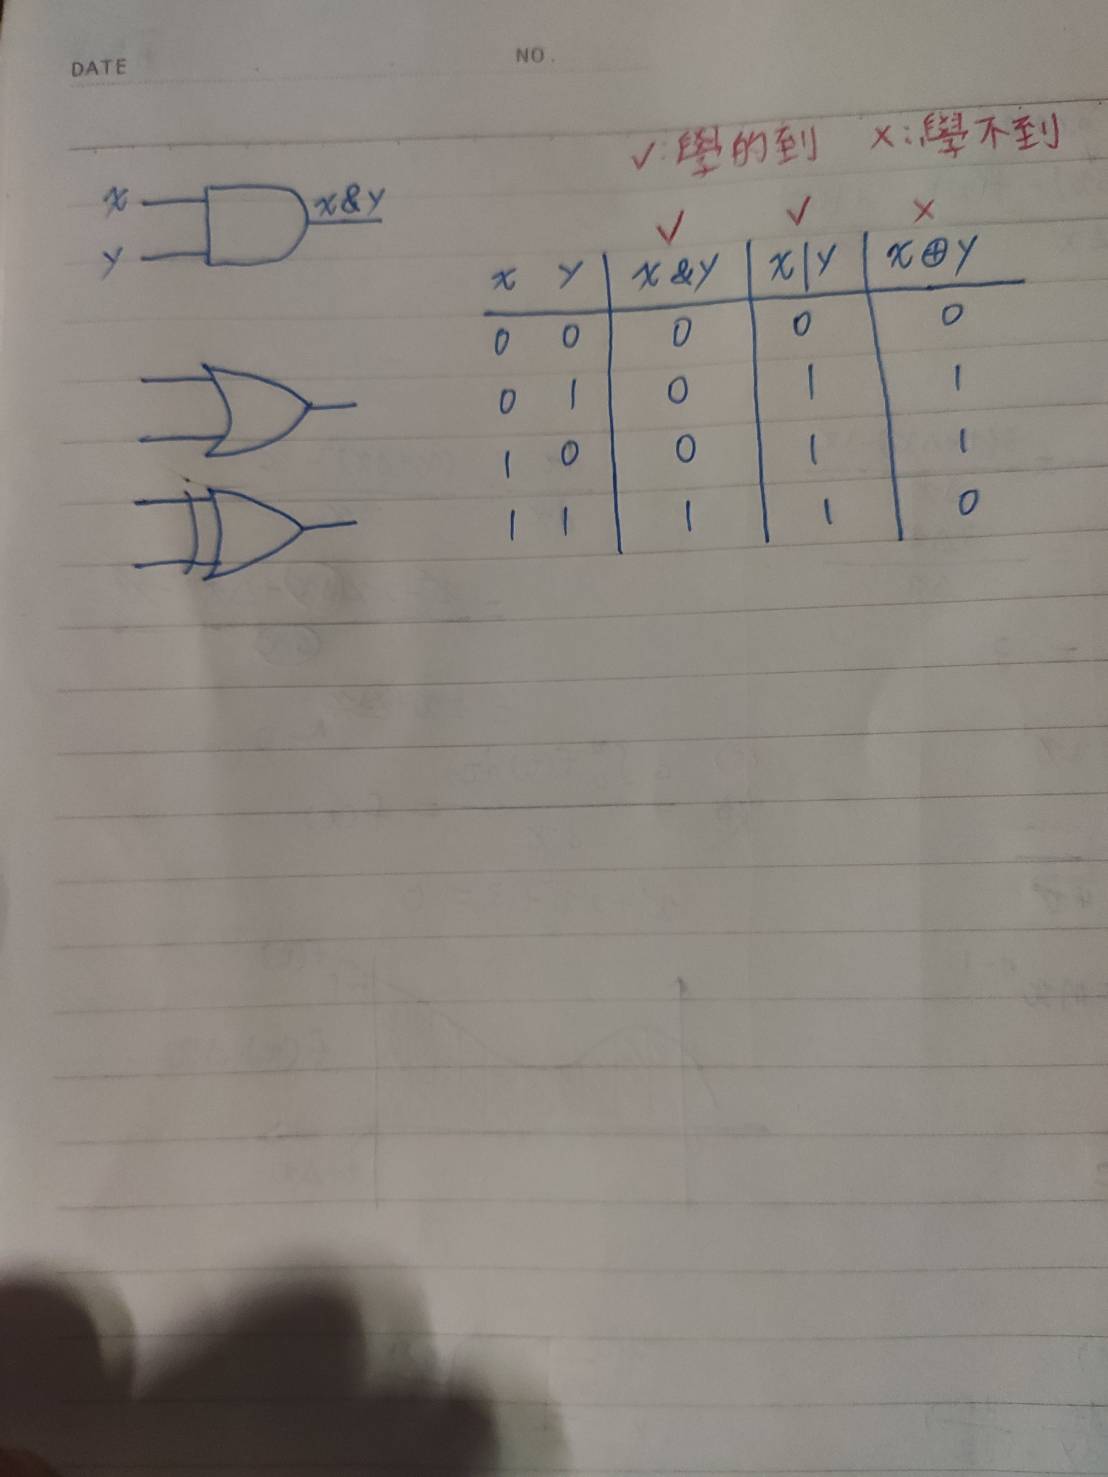 DATE
NO.
✓:學的到 ×:學不到
x x&y
y
✓ ✓ ×
x y x&y x|y x⊕y
0 0 0 0 0
0 1 0 1 1
1 0 0 1 1
1 1 1 1 0